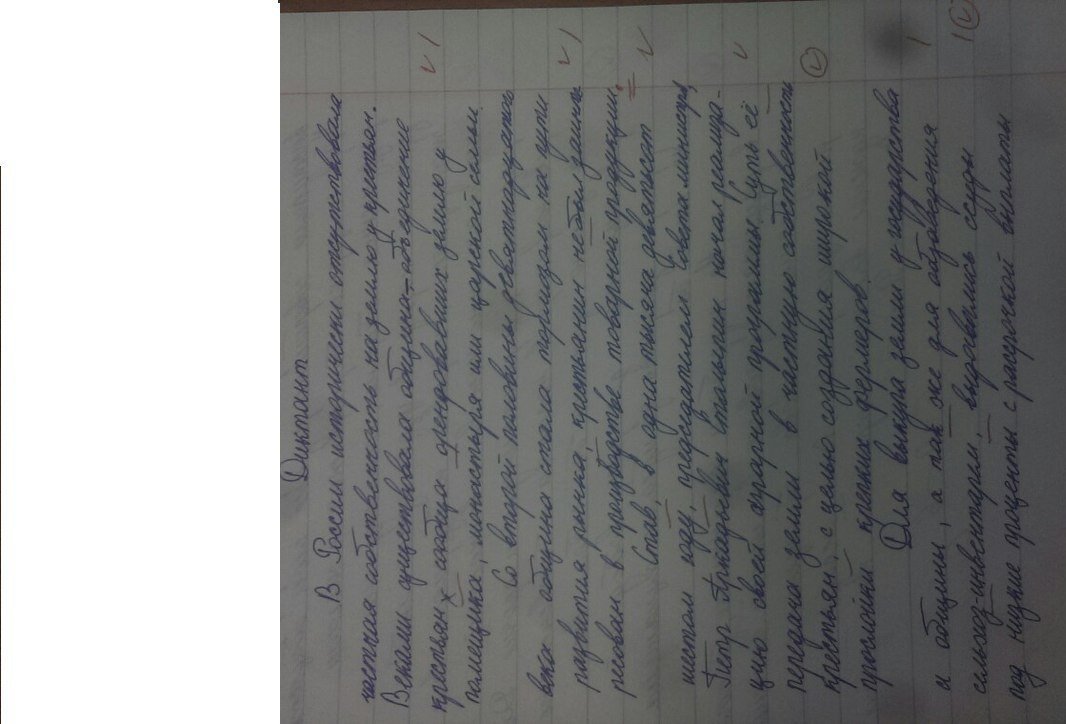 Диктант
В России исторически отсутствовала
частная собственность на землю у крестьян.
Веками существовала община-объединение
крестьян сообща арендовавших землю у
помещика, монастыря или царской семьи.
Со второй половины девятнадцатого
века община стала тормозом на пути
развития рынка, крестьянин не был заинте
ресован в производстве товарной продукции.
Став в одна тысяча девятисот
шестом году, председателем Совета министров,
Петр Аркадьевич Столыпин начал реализа-
цию своей аграрной программы. Суть её
передача земли в частную собственность
крестьян, с целью создания широкой
прослойки крепких фермеров.
Для выкупа земли у государства
и общины, а так же для обзаведения
сельхоз-инвентарем, выдавались ссуды
под низкие проценты с рассрочкой выплаты